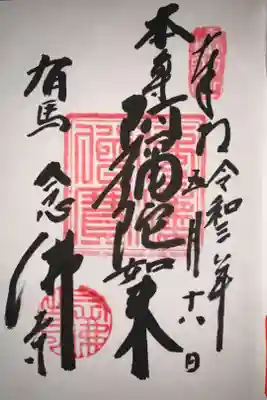 奉拝
令和三年
五月十八日
本尊
阿彌陀如来
有馬
念佛寺